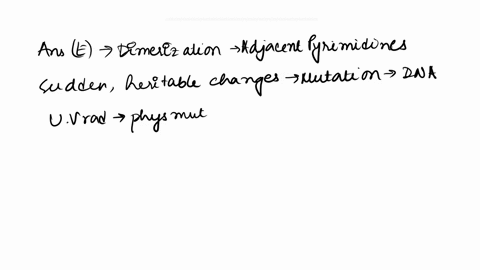 Ans (E) → Dimerization → Adjacent Pyrimidines
Sudden, heritable changes → Mutation → DNA
U.V rad → phys mut